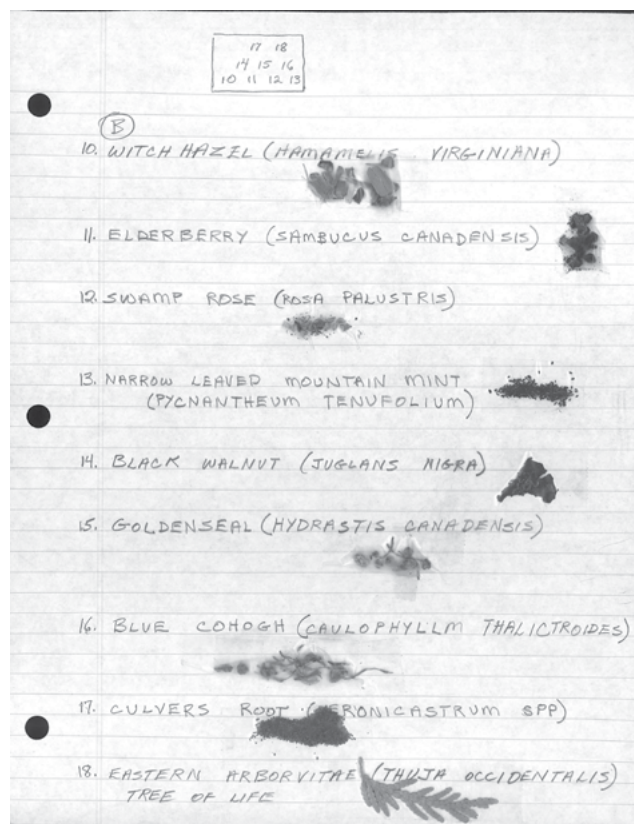 17 18
14 15 16
10 11 12 13
B
10. WITCH HAZEL (HAMAMELIS VIRGINIANA)
11. ELDERBERRY (SAMBUCUS CANADENSIS)
12. SWAMP ROSE (ROSA PALUSTRIS)
13. NARROW LEAVED MOUNTAIN MINT
(PYCNANTHEUM TENUFOLIUM)
14. BLACK WALNUT (JUGLANS NIGRA)
15. GOLDENSEAL (HYDRASTIS CANADENSIS)
16. BLUE COHOGH (CAULOPHYLLM THALICTROIDES)
17. CULVERS ROOT (VERONICASTRUM SPP)
18. EASTERN ARBORVITAE (THUJA OCCIDENTALIS)
TREE OF LIFE